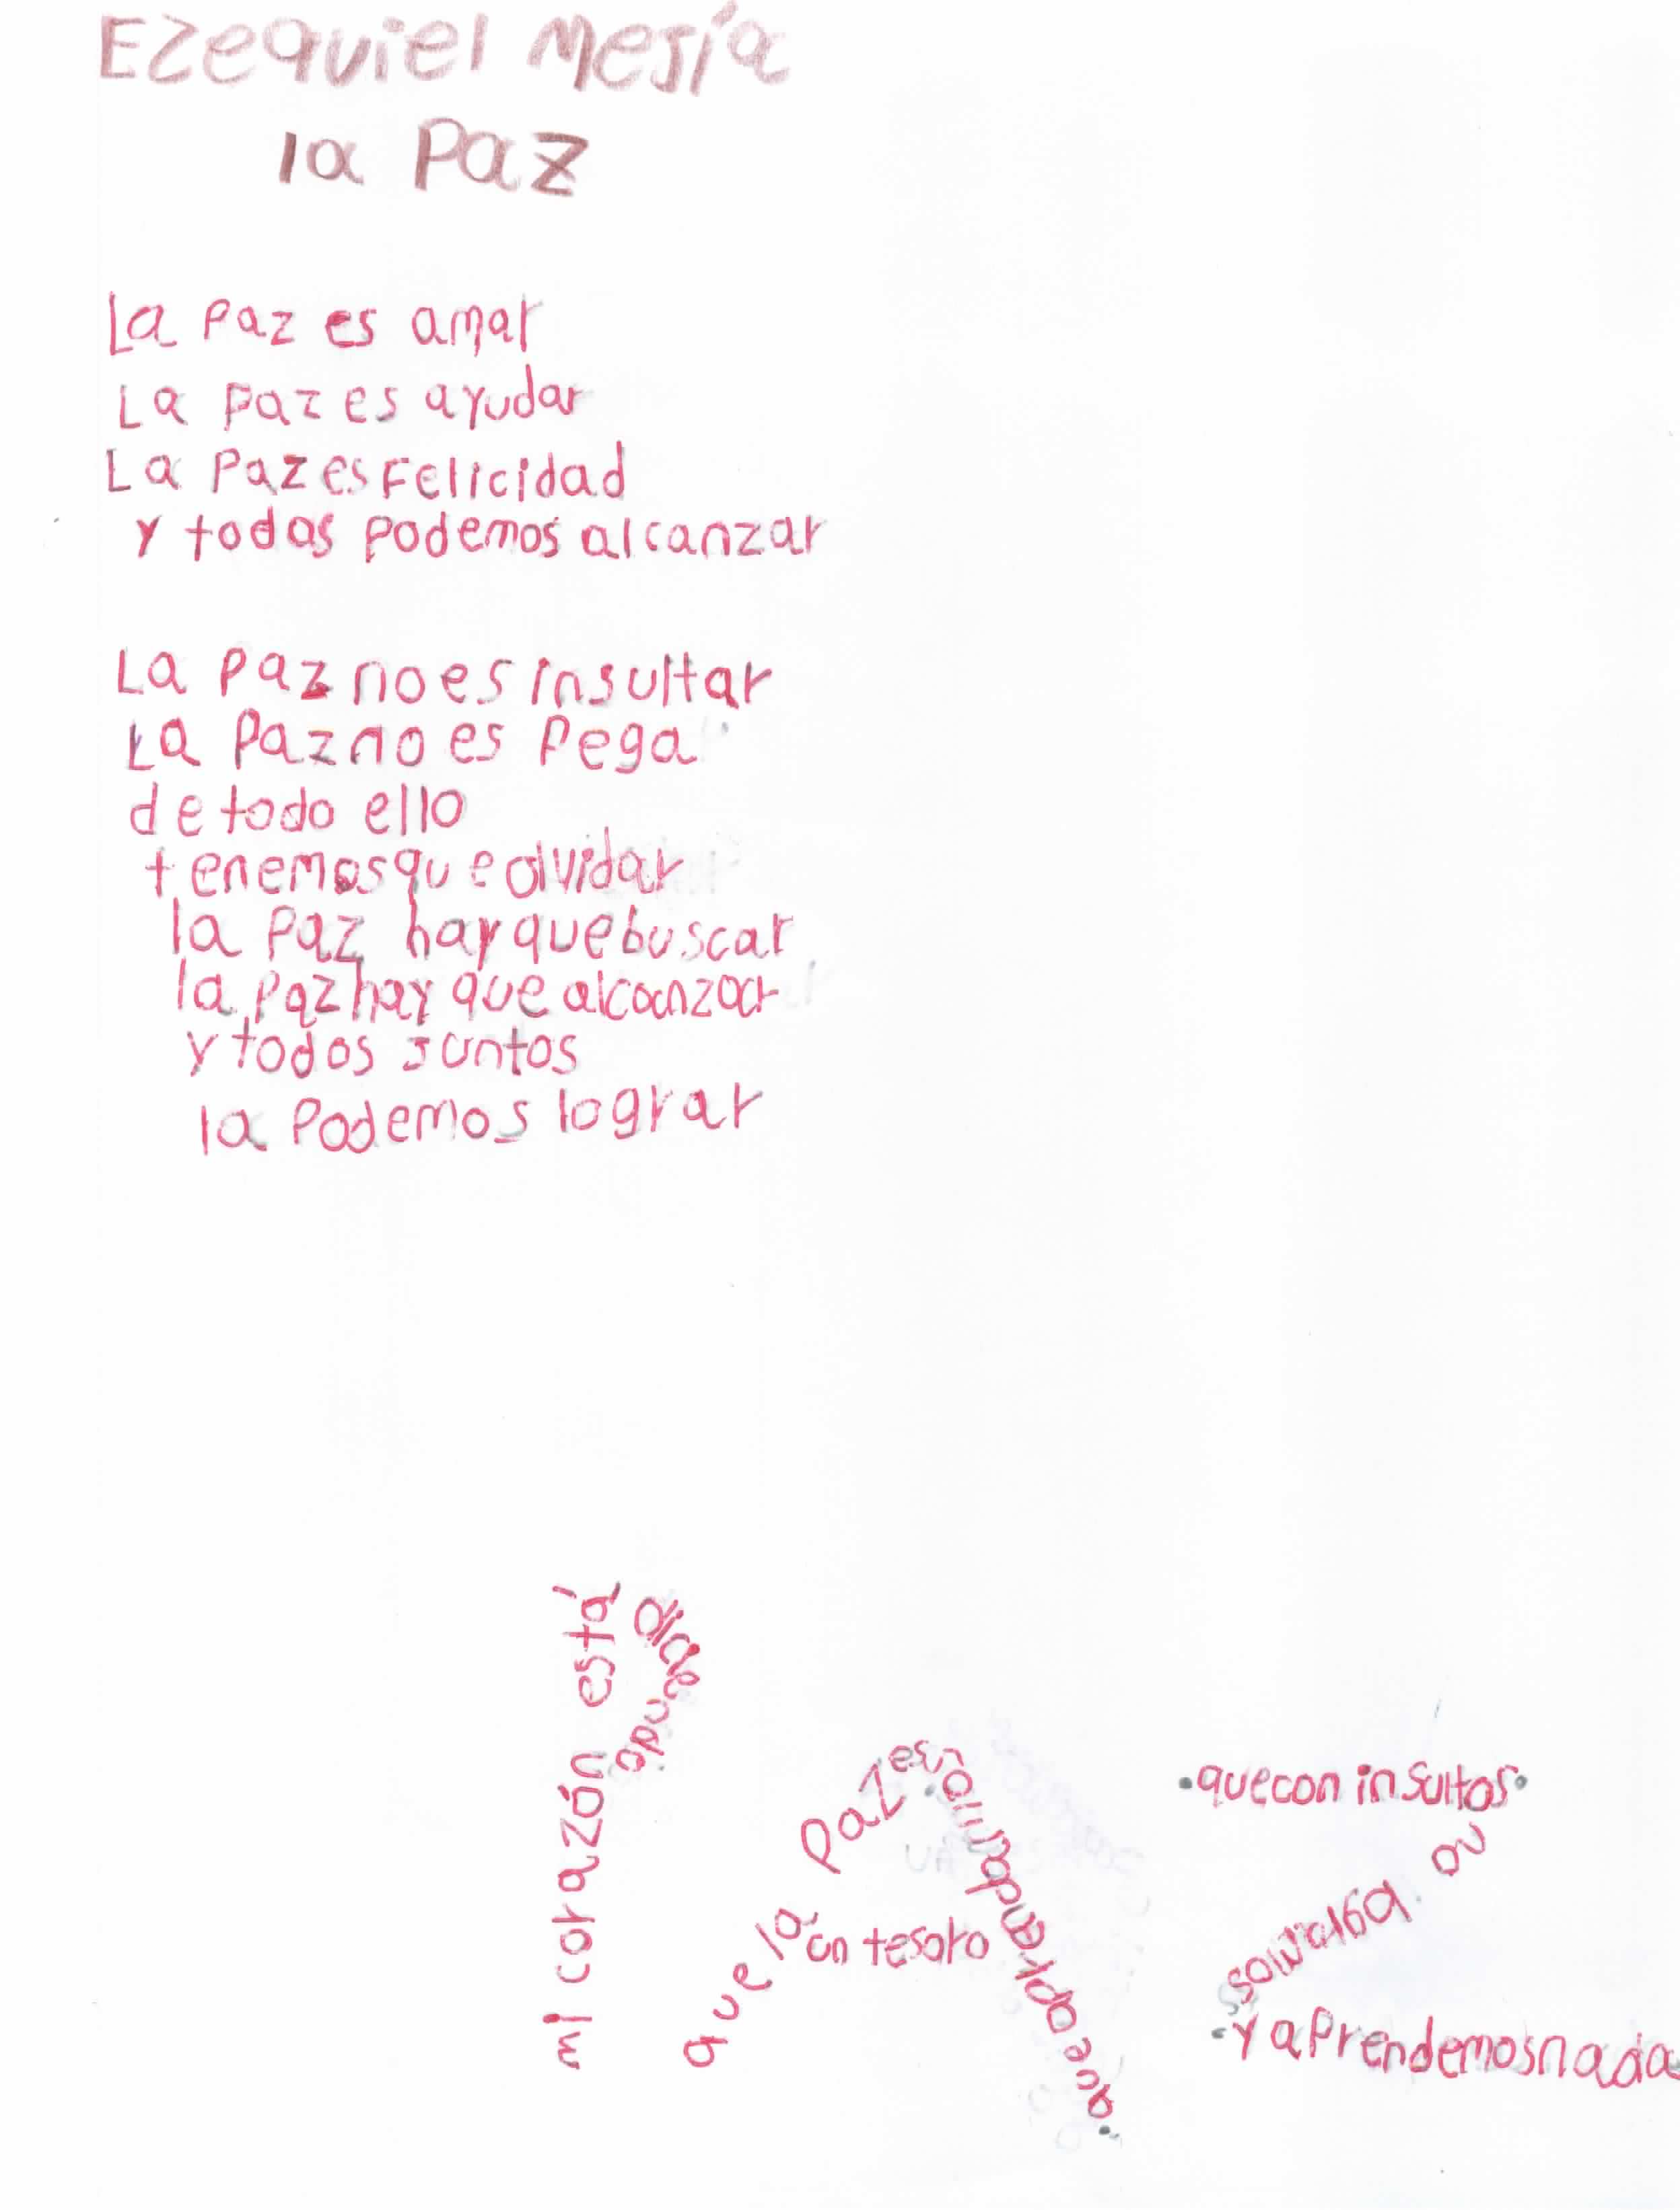 Ezequiel Mesía
la Paz
La Paz es amar
La Paz es ayudar
La Paz es Felicidad
y todos podemos alcanzar
La paz no es insultar
La Paz no es Pega
de todo ello
tenemos que olvidar
la Paz hay que buscar
la Paz hay que alcanzar
y todos juntos
la Podemos lograr
mi corazón está
diciendo
que la Paz es
un tesoro
que aprenda
.que con insultos.
no
logramos
y aprendemos nada